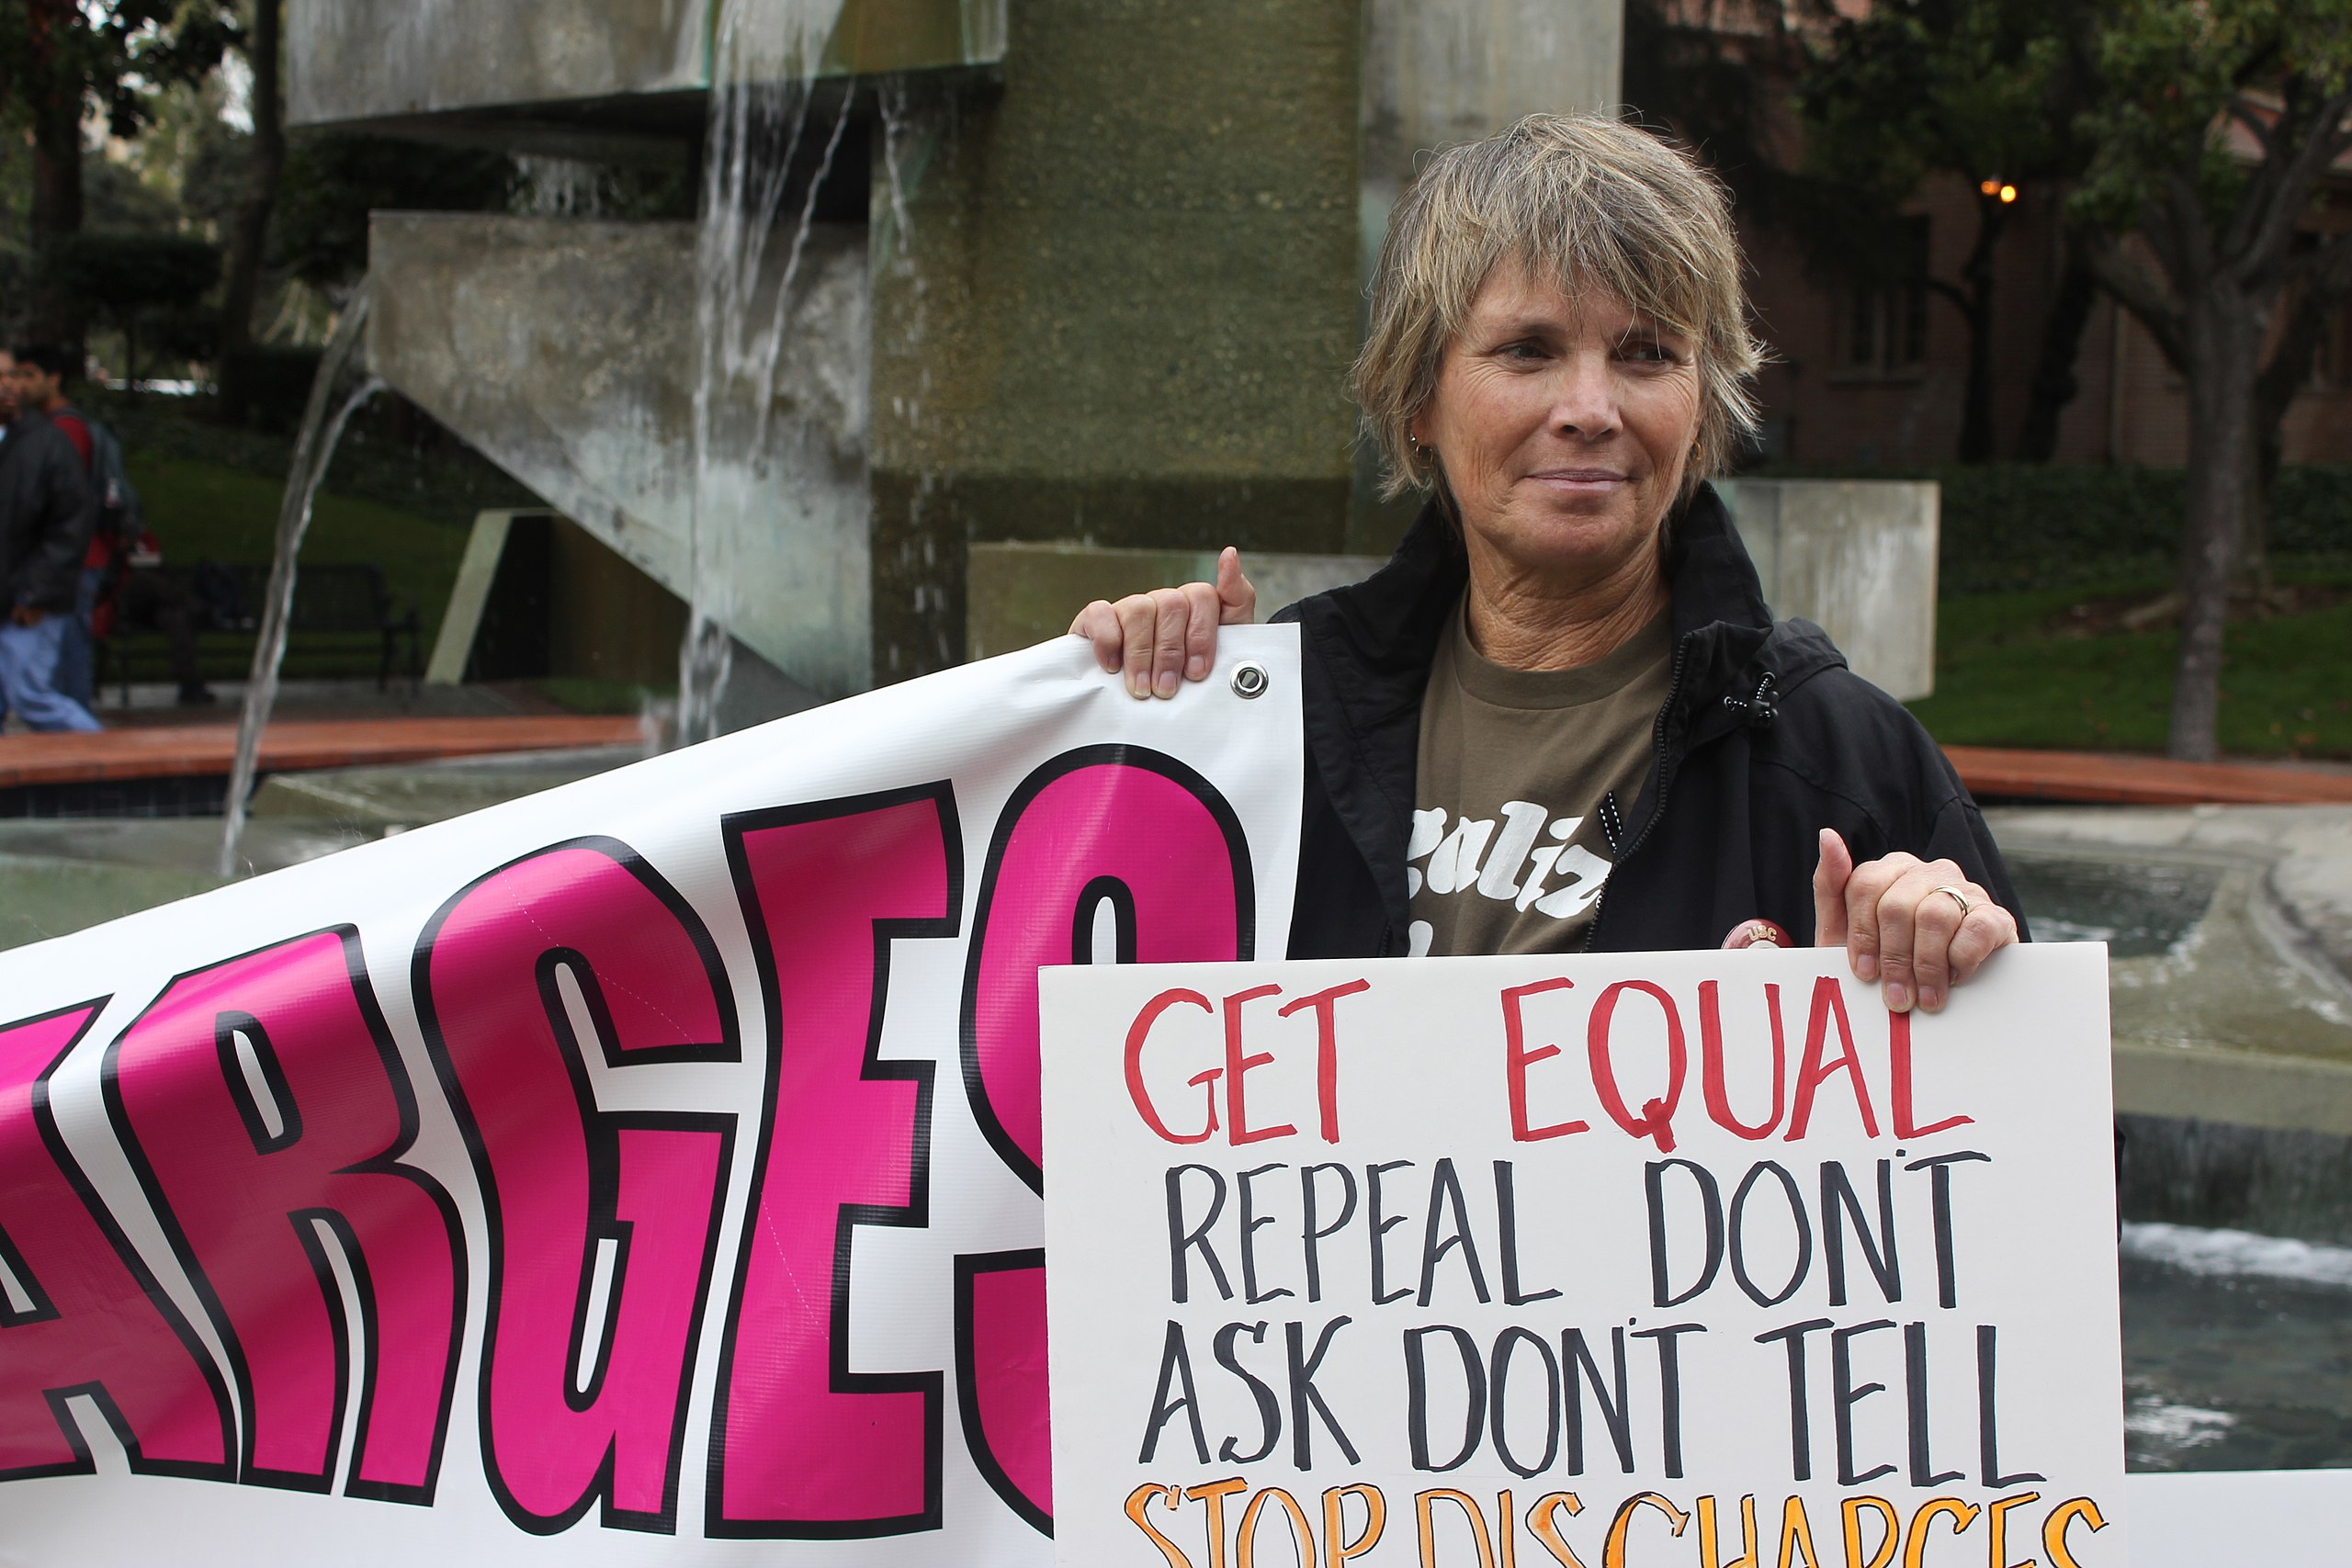 ARGES
aliz
USC
GET EQUAL
REPEAL DON'T
ASK DON'T TELL
STOP DISCHARGES